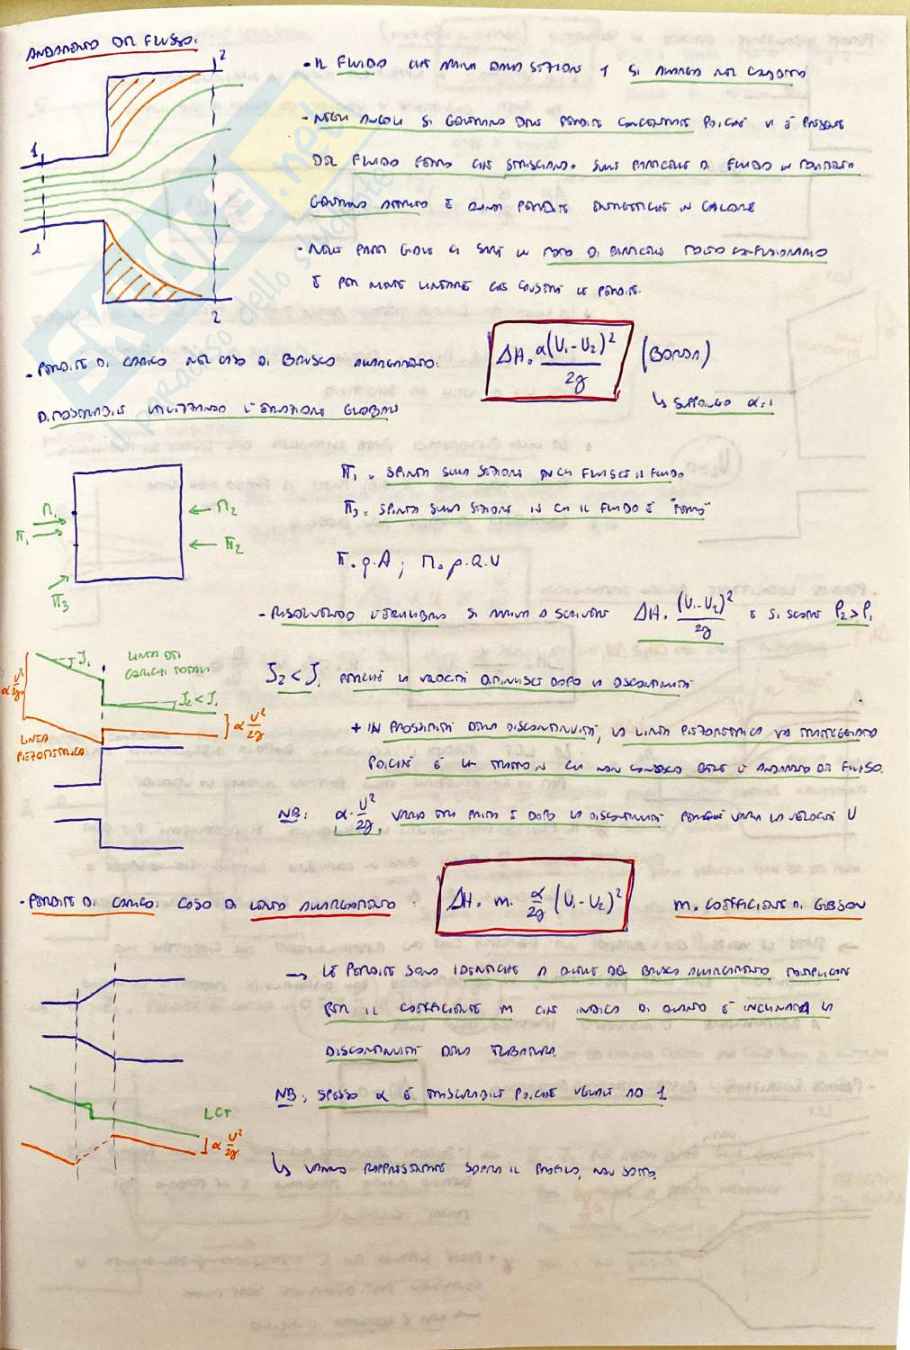 ANDAMENTO DEL FLUSSO:
2
1
1
2
- IL FLUIDO CHE ARRIVA DALLA SEZIONE 1 SI ALLARGA NEL CONDOTTO
- NEGLI ANGOLI SI GENERANO DELLE PERDITE CONCENTRATE POICHÉ VI È PRESENTE
DEL FLUIDO FERMO CHE STRISCIANDO SULLE PARTICELLE DI FLUIDO IN MOVIMENTO
GENERANO ATTRITO E QUINDI PERDITE ENERGETICHE IN CALORE
- NELLE PARTI GIALLE CI SARÀ UN MOTO DI PARTICELLE MOLTO CONFUSIONARIO
È PER QUESTE CHE CONSISTE LE PERDITE.
- PERDITE DI CARICO NEL CASO DI BRUSCO ALLARGAMENTO:
ΔH = α(U₁-U₂)² / 2g (BORDA)
↳ SUPPONGO α=1
DIMOSTRABILE UTILIZZANDO L'EQUAZIONE GLOBALE
Π₁ = SPINTA SULLA SEZIONE IN CUI FLUISCE IL FLUIDO
Π₃ = SPINTA SULLA SEZIONE IN CUI IL FLUIDO È "FERMO"
M₁
Π₁
Π₃
M₂
Π₂
Π = p·A ; M = ρ·Q·U
- RISOLVENDO L'EQUILIBRIO SI ARRIVA A SCRIVERE ΔH = (U₁-U₂)² / 2g E SI SCOPRE P₂>P₁
J₁
LINEA DEI
CARICHI TOTALI
J₂<J₁
α U²/2g
α U²/2g
LINEA
PIEZOMETRICA
J₂ < J₁ PERCHÉ LA VELOCITÀ DIMINUISCE DOPO LA DISCONTINUITÀ
+ IN PROSSIMITÀ DELLA DISCONTINUITÀ, LA LINEA PIEZOMETRICA VA TRATTEGGIATA
POICHÉ È UN TRATTO IN CUI NON CONOSCO BENE L'ANDAMENTO DEL FLUSSO.
NB: α·U²/2g, VARIA TRA PRIMA E DOPO LA DISCONTINUITÀ PERCHÉ VARIA LA VELOCITÀ U
- PERDITE DI CARICO: CASO DI LENTO ALLARGAMENTO: ΔH = m· α/2g (U₁-U₂)² m = COEFFICIENTE DI GIBSON
→ LE PERDITE SONO IDENTICHE A QUELLE DEL BRUSCO ALLARGAMENTO MOLTIPLICATE
PER IL COEFFICIENTE M CHE INDICA DI QUANTO È INCLINATA LA
DISCONTINUITÀ DELLA TUBATURA.
NB: SPESSO α È TRASCURABILE POICHÉ UGUALE AD 1
LCT
α U²/2g
↳ VANNO RAPPRESENTATE SOPRA IL PROFILO, NON SOTTO.
SKUOLA.net
il paradiso dello studente